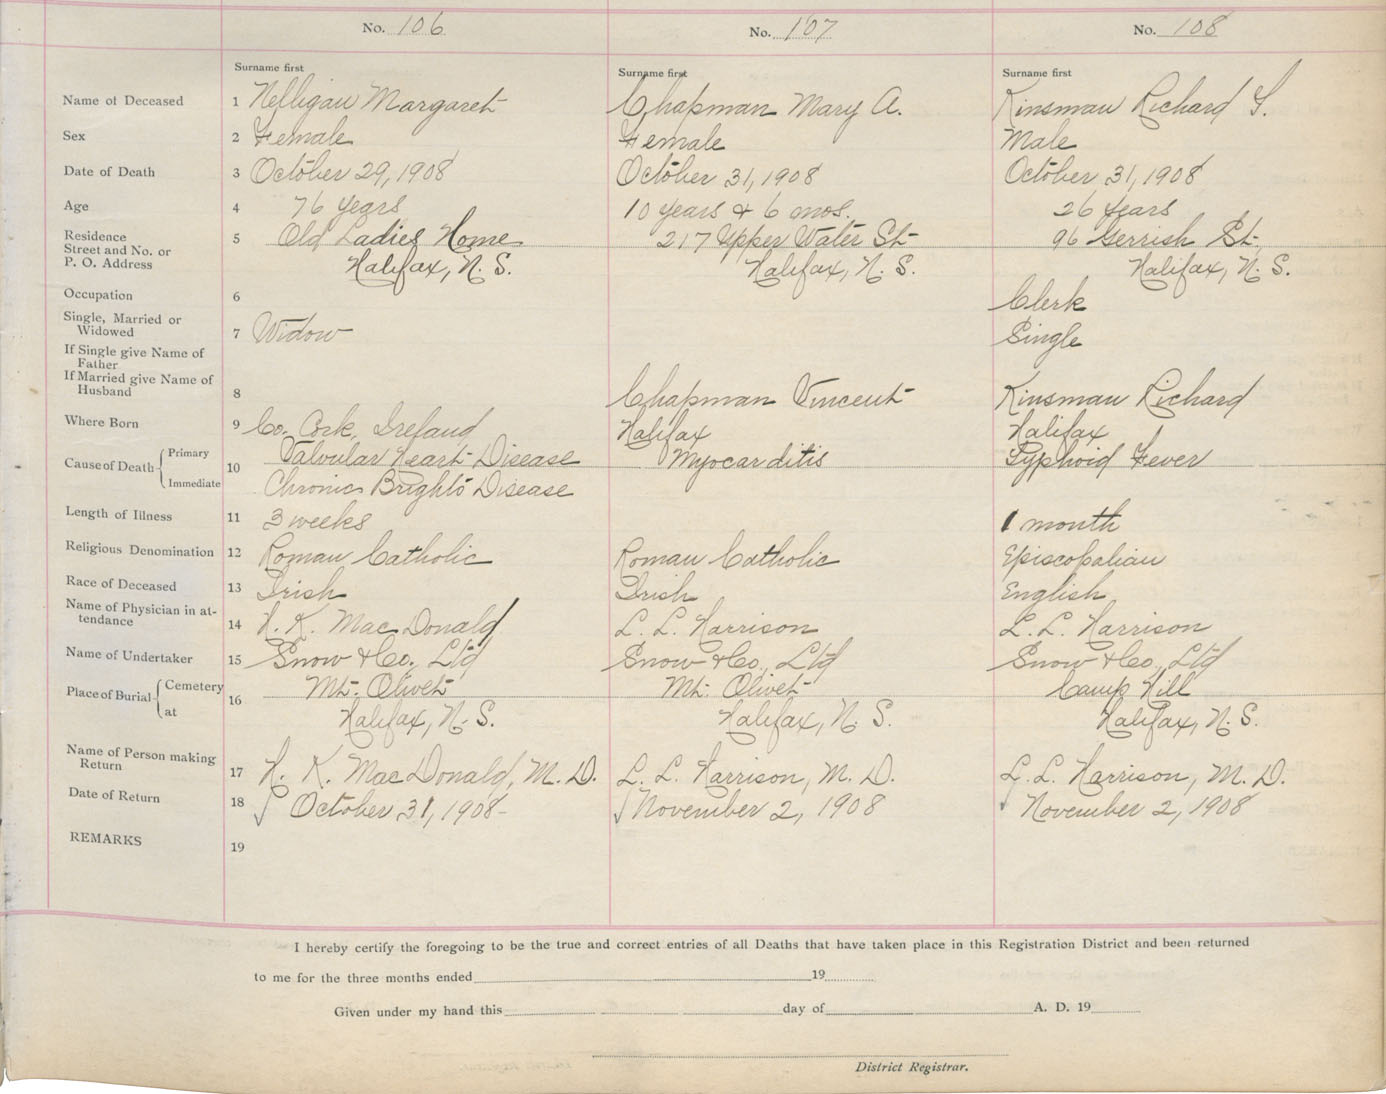 No. 106 No. 107 No. 108
Surname first Surname first Surname first
Name of Deceased 1 Nelligan Margaret Chapman Mary A. Kinsman Richard F.
Sex 2 Female Female Male
Date of Death 3 October 29, 1908 October 31, 1908 October 31, 1908
Age 4 76 years 10 years & 6 mos. 26 years
Residence 5 Old Ladies Home 217 Upper Water St. 96 Gerrish St.
Street and No. or
P. O. Address Halifax, N. S. Halifax, N. S. Halifax, N. S.
Occupation 6 Clerk
Single, Married or
Widowed 7 Widow Single
If Single give Name of
Father
If Married give Name of
Husband 8 Chapman Vincent Kinsman Richard
Where Born 9 Co. Cork, Ireland Halifax Halifax
Cause of Death Primary 10 Valvular Heart Disease Myocarditis Typhoid Fever
Immediate Chronic Brights Disease
Length of Illness 11 3 weeks 1 month
Religious Denomination 12 Roman Catholic Roman Catholic Episcopalian
Race of Deceased 13 Irish Irish English
Name of Physician in at-
tendance 14 H. K. MacDonald L. L. Harrison L. L. Harrison
Name of Undertaker 15 Snow & Co., Ltd Snow & Co., Ltd Snow & Co., Ltd
Place of Burial Cemetery 16 Mt. Olivet Mt. Olivet Camp Hill
at Halifax, N. S. Halifax, N. S. Halifax, N. S.
Name of Person making
Return 17 H. K. MacDonald, M. D. L. L. Harrison, M. D. L. L. Harrison, M. D.
Date of Return 18 October 31, 1908 November 2, 1908 November 2, 1908
REMARKS 19
I hereby certify the foregoing to be the true and correct entries of all Deaths that have taken place in this Registration District and been returned
to me for the three months ended 19
Given under my hand this day of A. D. 19
District Registrar.